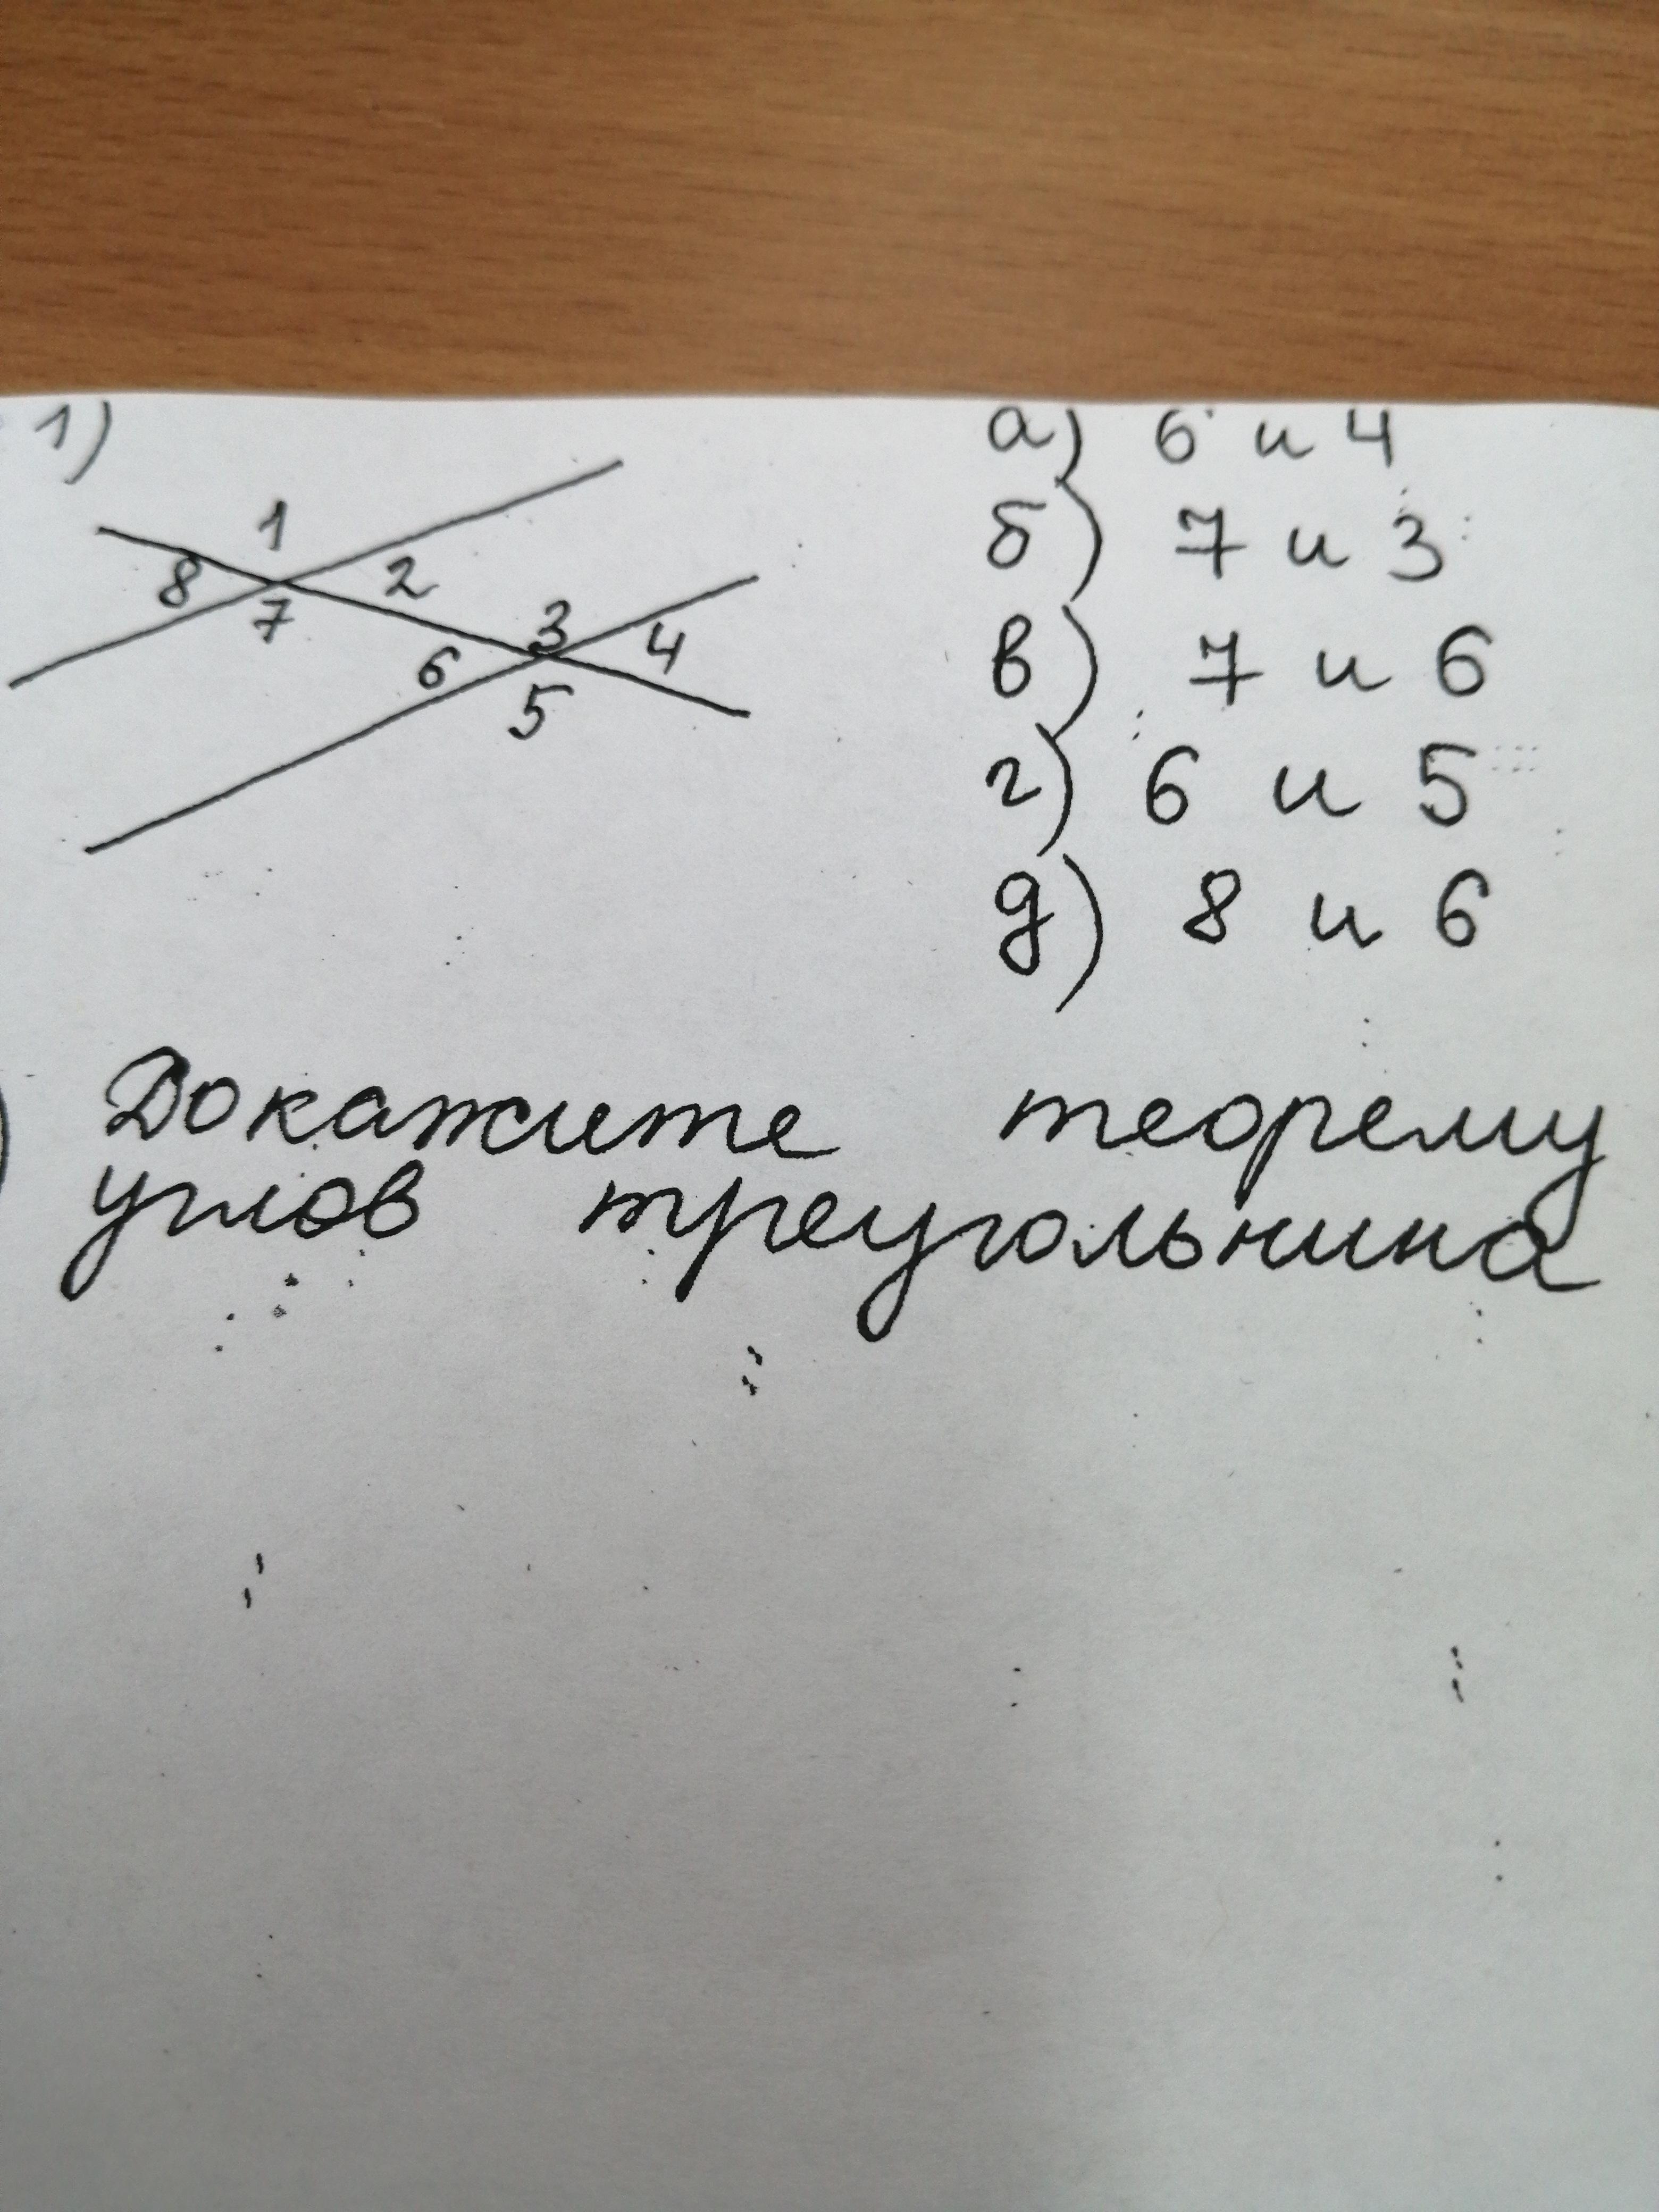 1)
1
8 2
7
3
6 4
5
а) 6 и 4
б) 7 и 3
в) 7 и 6
г) 6 и 5
д) 8 и 6
) Докажите теорему
углов треугольника